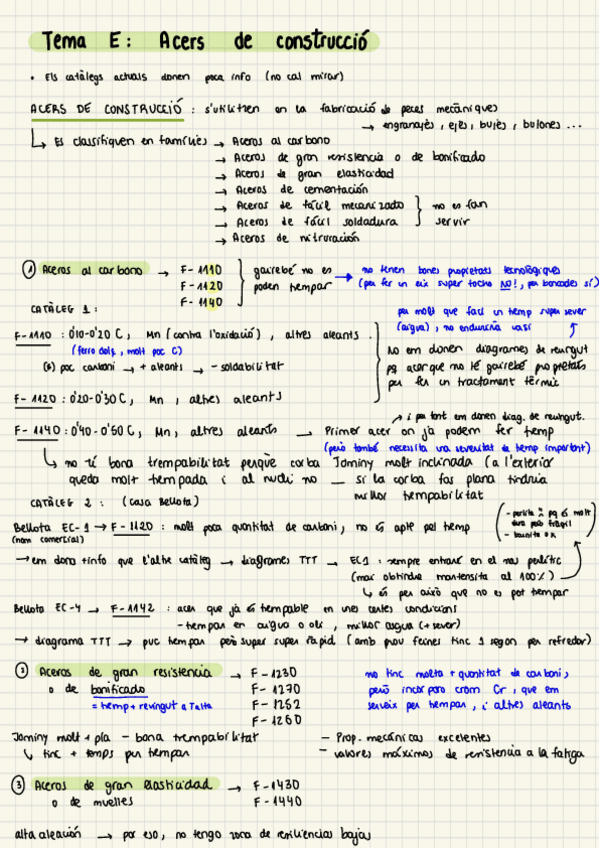 Tema E: Acers de construcció
• Els catàlegs actuals donen poca info (no cal mirar)
ACERS DE CONSTRUCCIÓ: s'utilitzen en la fabricació de peces mecàniques
→ engranajes, ejes, bujes, bulones ...
↳ Es classifiquen en famílies → Aceros al carbono
→ Aceros de gran resistencia o de bonificado
→ Aceros de gran elasticidad
→ Aceros de cementación
→ Aceros de fácil mecanizado
→ Aceros de fácil soldadura
no es fan servir
→ Aceros de nitruración
① Aceros al carbono → F-1110
F-1120
F-1140
gairebé no es poden trempar → no tenen bones propietats tecnològiques
(per fer un eix super tocho NO!, per bancades sí)
CATÀLEG 1:
per molt que faci un temp super sever
(aigua), no enduriria casi
F-1110: 0'10-0'20 C, Mn (contra l'oxidació), altres aleants.
(ferro dolç, molt poc C)
(*) poc carboni → + aleants → - soldabilitat
No em donen diagrames de revingut
pq acer que no té gairebé propietats
per fer un tractament tèrmic
F-1120: 0'20-0'30 C, Mn, altres aleants
→ i per tant em donen diag. de revingut.
F-1140: 0'40-0'50 C, Mn, altres aleants → Primer acer on ja podem fer temp
(però també necessita una severitat de temp important)
↳ no té bona trempabilitat perquè corba Jominy molt inclinada (a l'exterior
queda molt tempada i al nucli no _ si la corba fos plana tindria
millor tempabilitat
CATÀLEG 2: (casa Bellota)
Bellota EC-1 → F-1120: molt poca quantitat de carboni, no és apte pel temp
(nom comercial)
- perlita X pq és molt
dura però fràgil
- bainita OK
→ em dona + info que l'altre catàleg → diagrames TTT → EC1: sempre entraré en el nas perlític
(mai obtindré martensita al 100%)
↳ és per això que no es pot tempar
Bellota EC-4 → F-1142: acer que ja és tempable en unes certes condicions
- tempar en aigua o oli, millor aigua (+ sever)
→ diagrama TTT → puc tempar però super super ràpid (amb prou feines tinc 1 segon per refredar)
② Aceros de gran resistencia
o de bonificado
= temp + revingut a T alta
→ F-1230
F-1270
F-1252
F-1260
no tinc molta + quantitat de carboni,
però incorporo crom Cr, que em
serveix per tempar, i altres aleants
Jominy molt + pla - bona trempabilitat
↳ tinc + temps per tempar
- Prop. mecánicas excelentes
- valores máximos de resistencia a la fatiga
③ Aceros de gran elasticidad
o de muelles
→ F-1430
F-1440
alta aleación → por eso, no tengo zona de resiliencias bajas